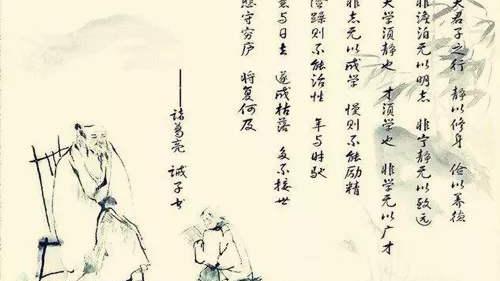 夫君子之行 静以修身 俭以养德
非澹泊无以明志 非宁静无以致远
夫学须静也 才须学也 非学无以广才
非志无以成学 慢则不能励精
险躁则不能治性 年与时驰
意与日去 遂成枯落 多不接世
悲守穷庐 将复何及
——诸葛亮 诫子书